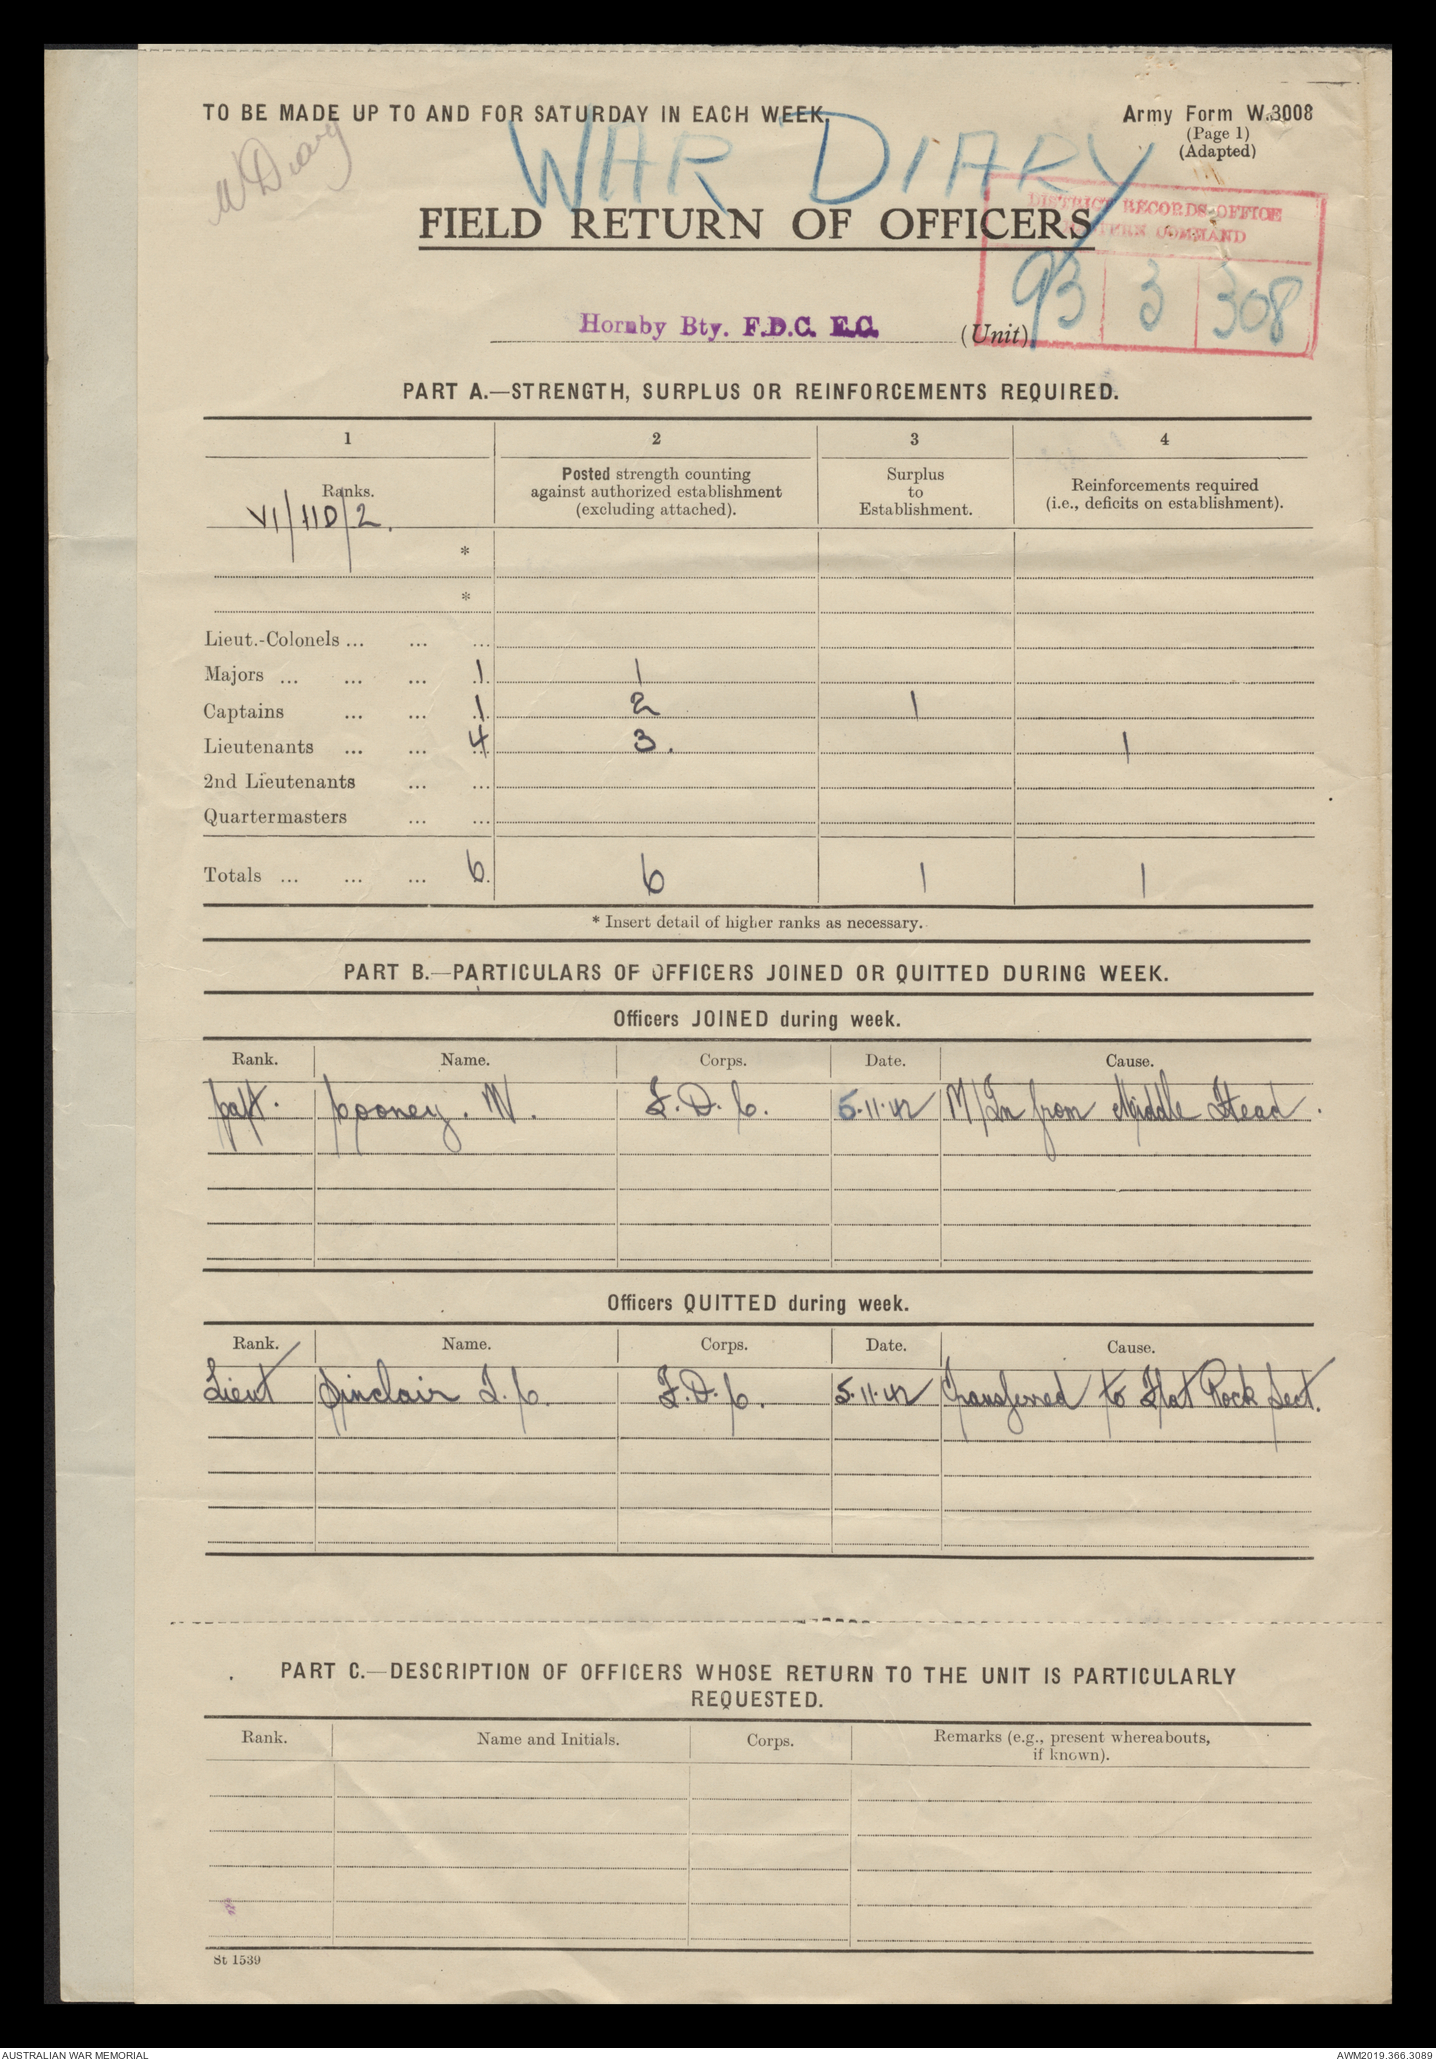 TO BE MADE UP TO AND FOR SATURDAY IN EACH WEEK.
Army Form W.3008
(Page 1)
(Adapted)
W Diary
WAR DIARY
FIELD RETURN OF OFFICERS
DISTRICT RECORDS OFFICE
EASTERN COMMAND
93 3 308
Hornby Bty. F.D.C. E.C. (Unit)
PART A.—STRENGTH, SURPLUS OR REINFORCEMENTS REQUIRED.
1 2 3 4
Ranks. Posted strength counting against authorized establishment (excluding attached). Surplus to Establishment. Reinforcements required (i.e., deficits on establishment).
VI/11D/2.
*
*
Lieut.-Colonels ... ... ...
Majors ... ... ... 1 1
Captains ... ... 1 2 1
Lieutenants ... ... 4 3. 1
2nd Lieutenants ... ...
Quartermasters ... ...
Totals ... ... ... 6. 6 1 1
* Insert detail of higher ranks as necessary.
PART B.—PARTICULARS OF OFFICERS JOINED OR QUITTED DURING WEEK.
Officers JOINED during week.
Rank. Name. Corps. Date. Cause.
Capt. Cooney. W. F.D.C. 5.11.42 M/In from Middle Head.
Officers QUITTED during week.
Rank. Name. Corps. Date. Cause.
Lieut Sinclair I.C. F.D.C. 5.11.42 Transferred to Flat Rock Sect.
PART C.—DESCRIPTION OF OFFICERS WHOSE RETURN TO THE UNIT IS PARTICULARLY
REQUESTED.
Rank. Name and Initials. Corps. Remarks (e.g., present whereabouts, if known).
St 1539
AUSTRALIAN WAR MEMORIAL
AWM2019.366.3089